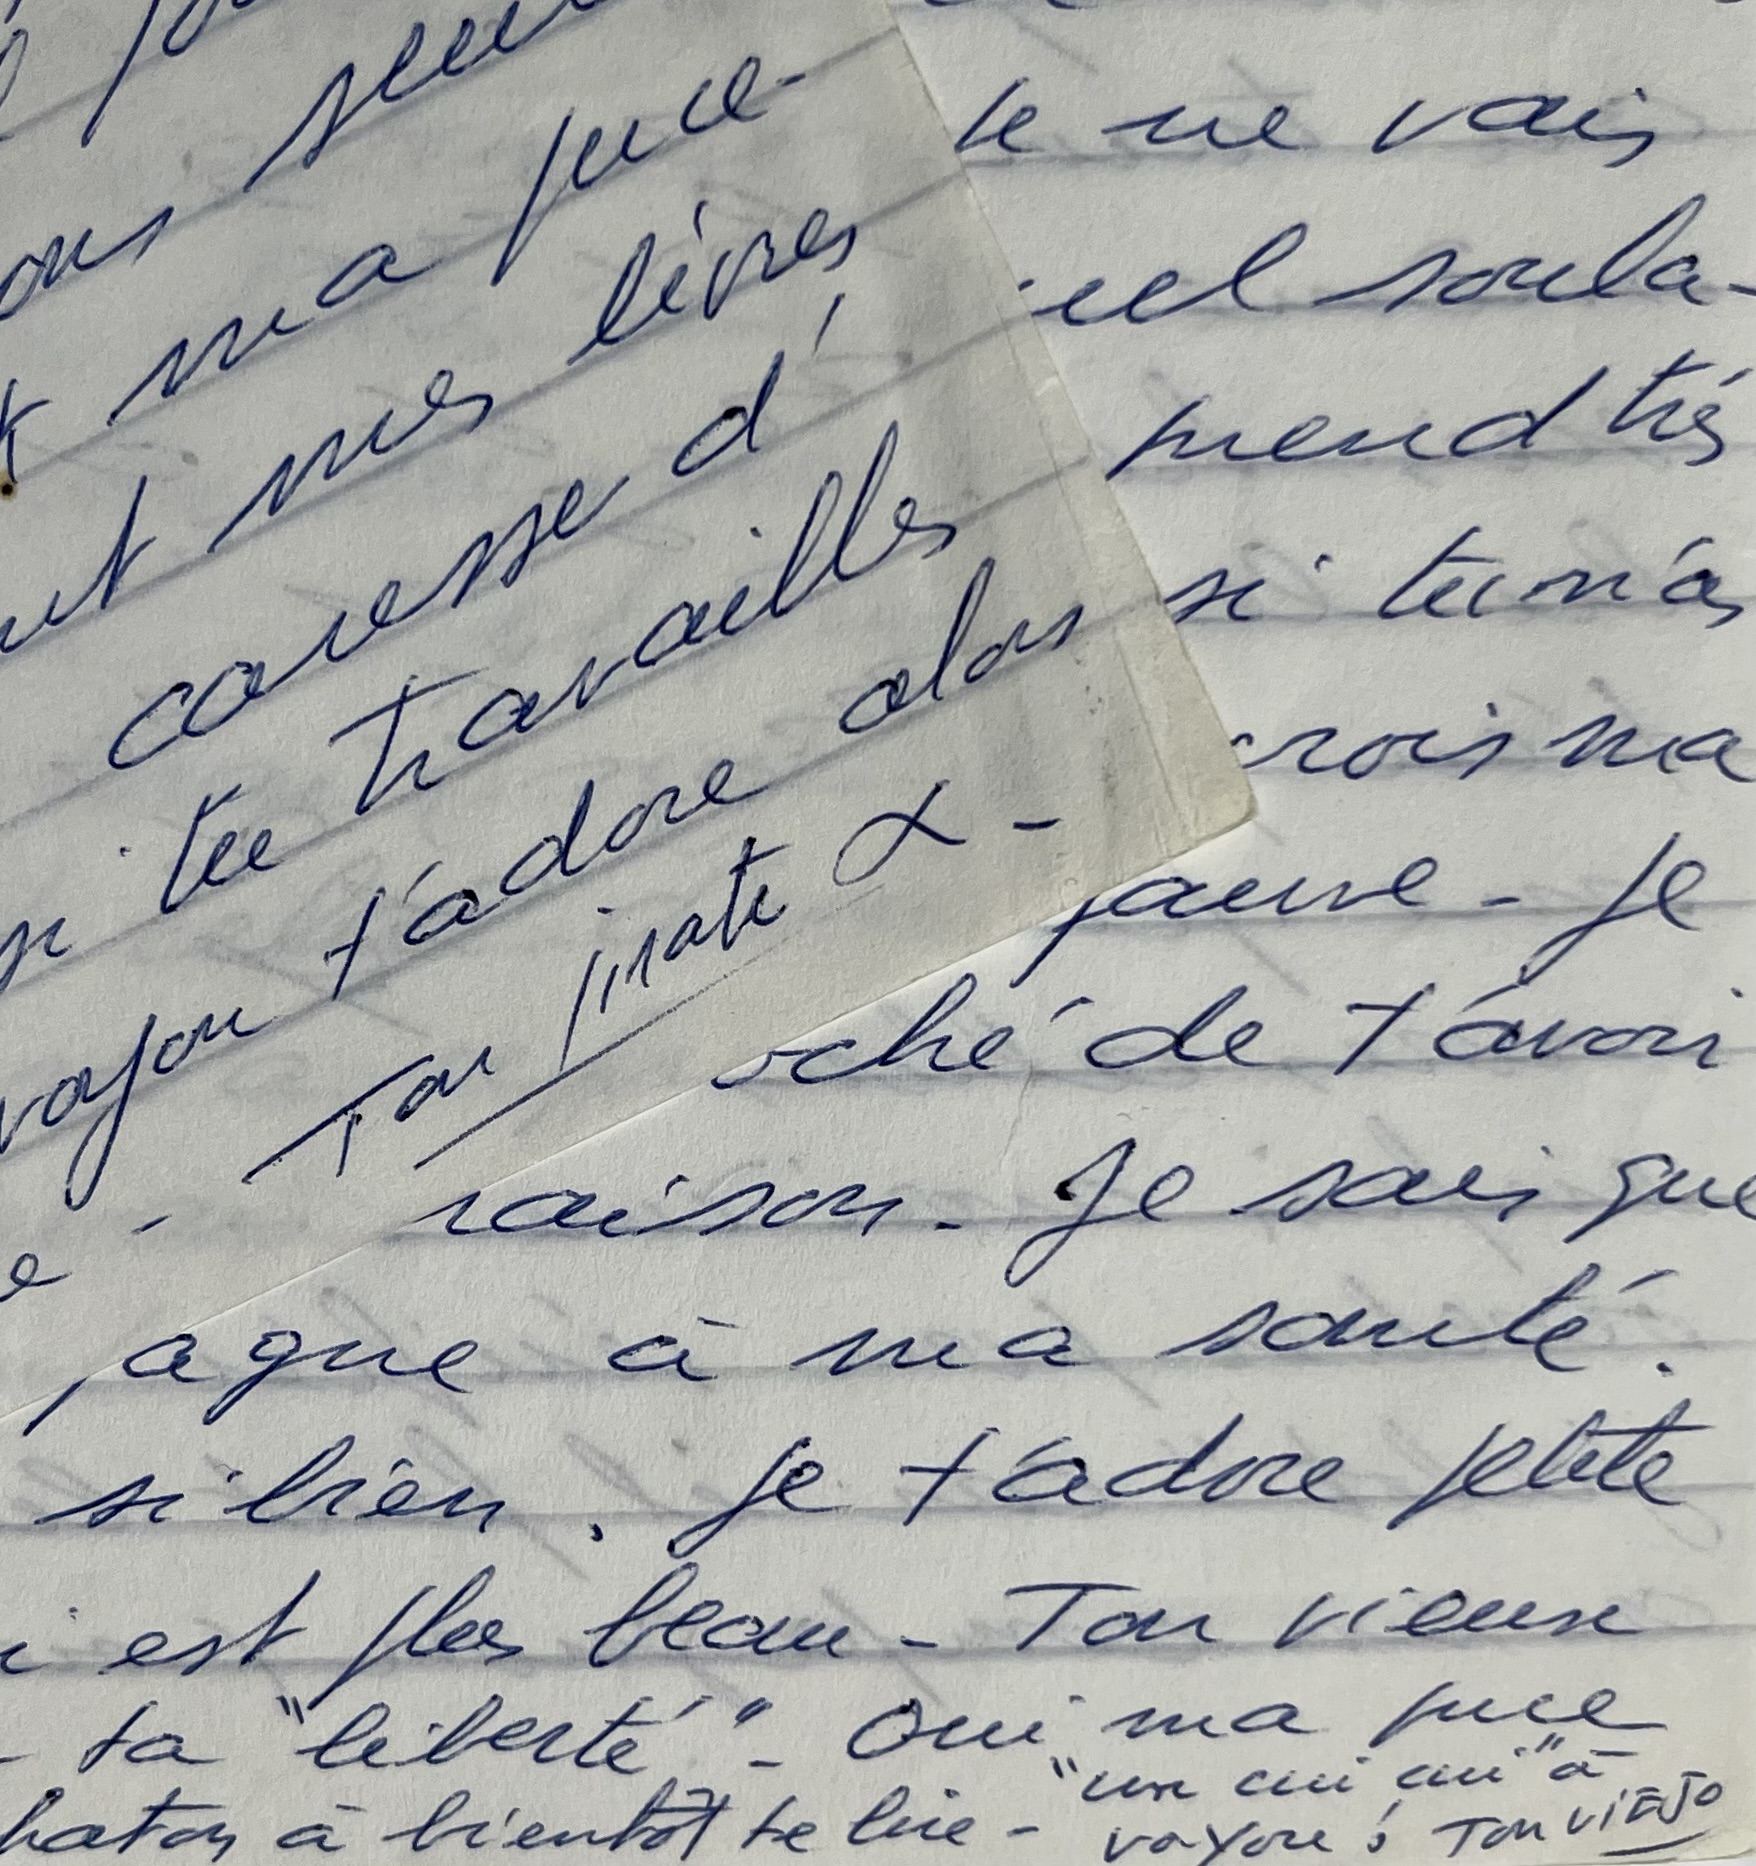 ma puce -
mes lèvres
caresse d'
si tu travailles
voyou t'adore alors
Ton pirate
te ne vais
quel soula-
prend très
si tu n'as
crois ma
jaune - Je
oché de t'avoir
raison - Je sais que
à ma santé.
si bien. Je t'adore petite
i est plus beau - Ton vieux
- ta "liberté" - Oui ma puce
"un cui cui" à
haton à bientôt te lire -
voyou! Ton viejo